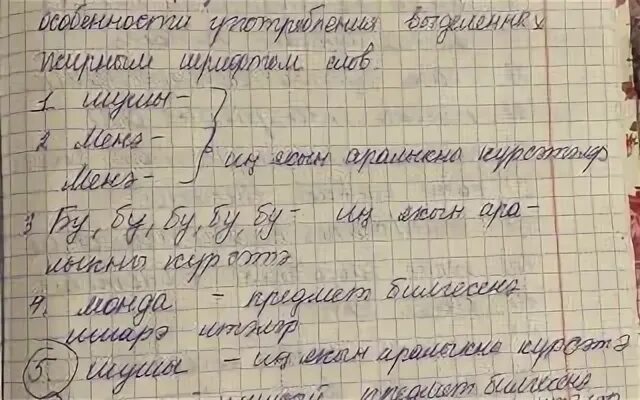 особенности употребления выделенных
жирным шрифтом слов.
1. шушы -
2. Менә -
Менә -
иң якын аралыкны күрсәтәләр
3 Бу, бу, бу, бу, бу - иң якын ара-
лыкны күрсәтә
4. монда - предмет билгесенә
ишарә итәләр
5. шушы - иң якын аралыкны күрсәтә
предмет билгесенә